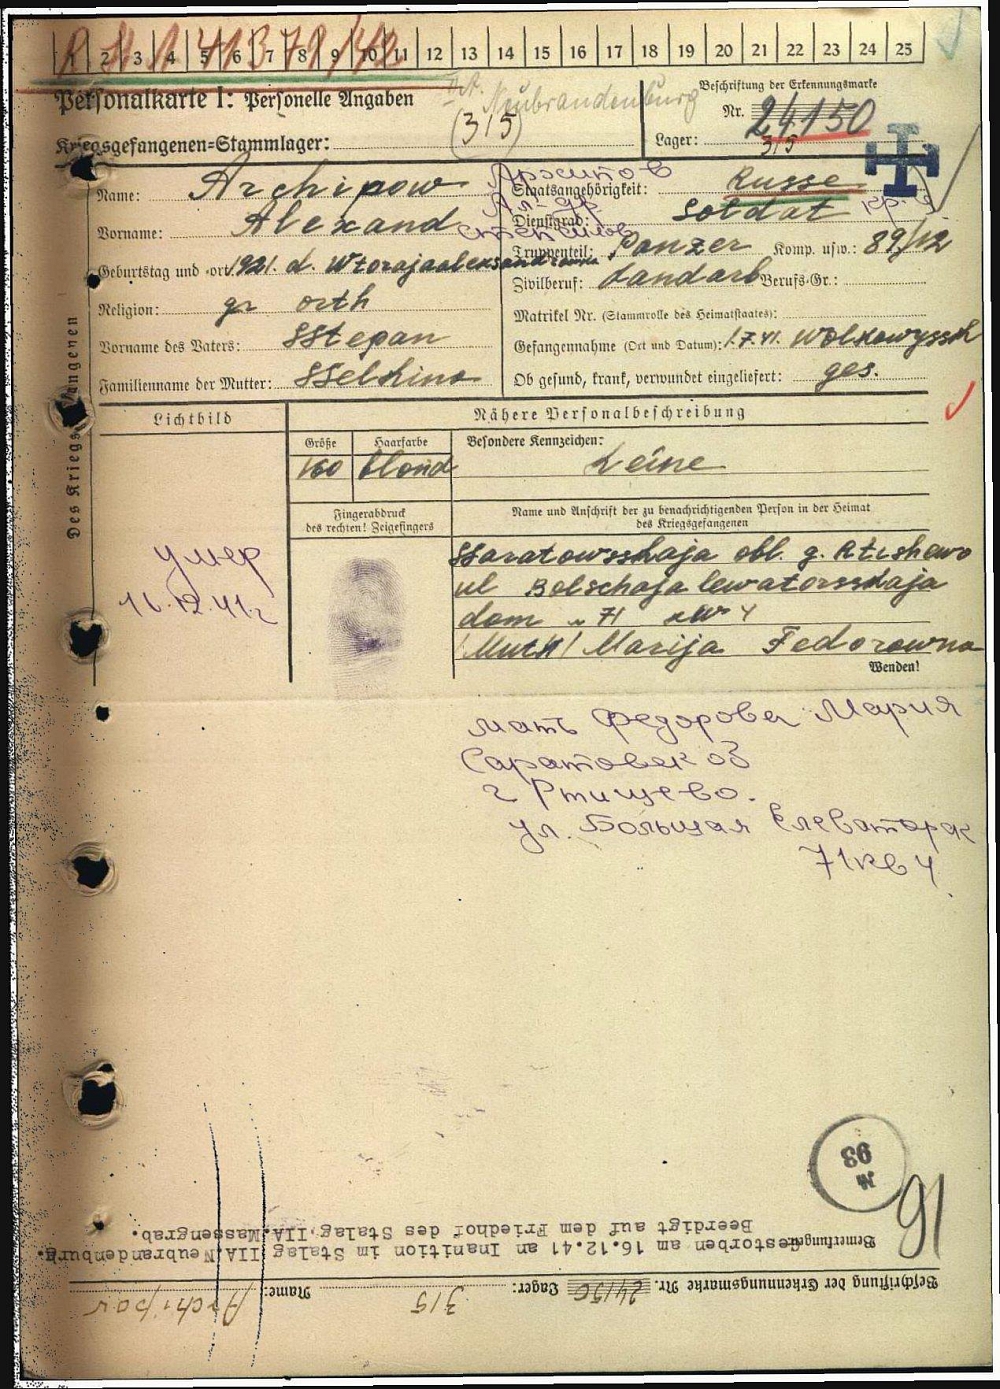 1 2 3 4 5 6 7 8 9 10 11 12 13 14 15 16 17 18 19 20 21 22 23 24 25
Personalkarte I: Personelle Angaben
II A. Neubrandenburg
(315)
Kriegsgefangenen=Stammlager:
Beschriftung der Erkennungsmarke
Nr. 24150
Lager: 315
Des Kriegsgefangenen
Name: Archipow
Архипов
Vorname: Alexand
Ал-др
Степанов
Geburtstag und =ort 1921. d. Wtorajaaleksandrowna
Religion: gr orth
Vorname des Vaters: SStepan
Familienname der Mutter: SSelkina
Staatsangehörigkeit: Russe
Dienstgrad: Soldat кр-ц
Truppenteil: Panzer Komp. usw.: 89/12
Zivilberuf: Landarb Berufs=Gr.:
Matrikel Nr. (Stammrolle des Heimatstaates):
Gefangennahme (Ort und Datum): 1.7.41. Wolkowyssk
Ob gesund, krank, verwundet eingeliefert: ges.
Lichtbild
Nähere Personalbeschreibung
Größe
160
Haarfarbe
blond
Besondere Kennzeichen:
keine
Fingerabdruck
des rechten! Zeigefingers
Name und Anschrift der zu benachrichtigenden Person in der Heimat
des Kriegsgefangenen
умер
16.12.41г
SSaratowsskaja obl. g. Rtishewo
ul Bolschaja lewatorsskaja
dom № 71 kw 4
/Mutt/ Marija Fedorowna
Wenden!
мать Федорова Мария
Саратовск об
г Ртищево.
ул. Большая Елеваторск
71 кв 4
93
91
Beschriftung der Erkennungsmarke Nr. 24150 Lager: 315 Name: Archipow
Bemerkungen:
Gestorben am 16.12.41 an Inanition im Stalag IIA Neubrandenburg.
Beerdigt auf dem Friedhof des Stalag IIA, Massengrab.